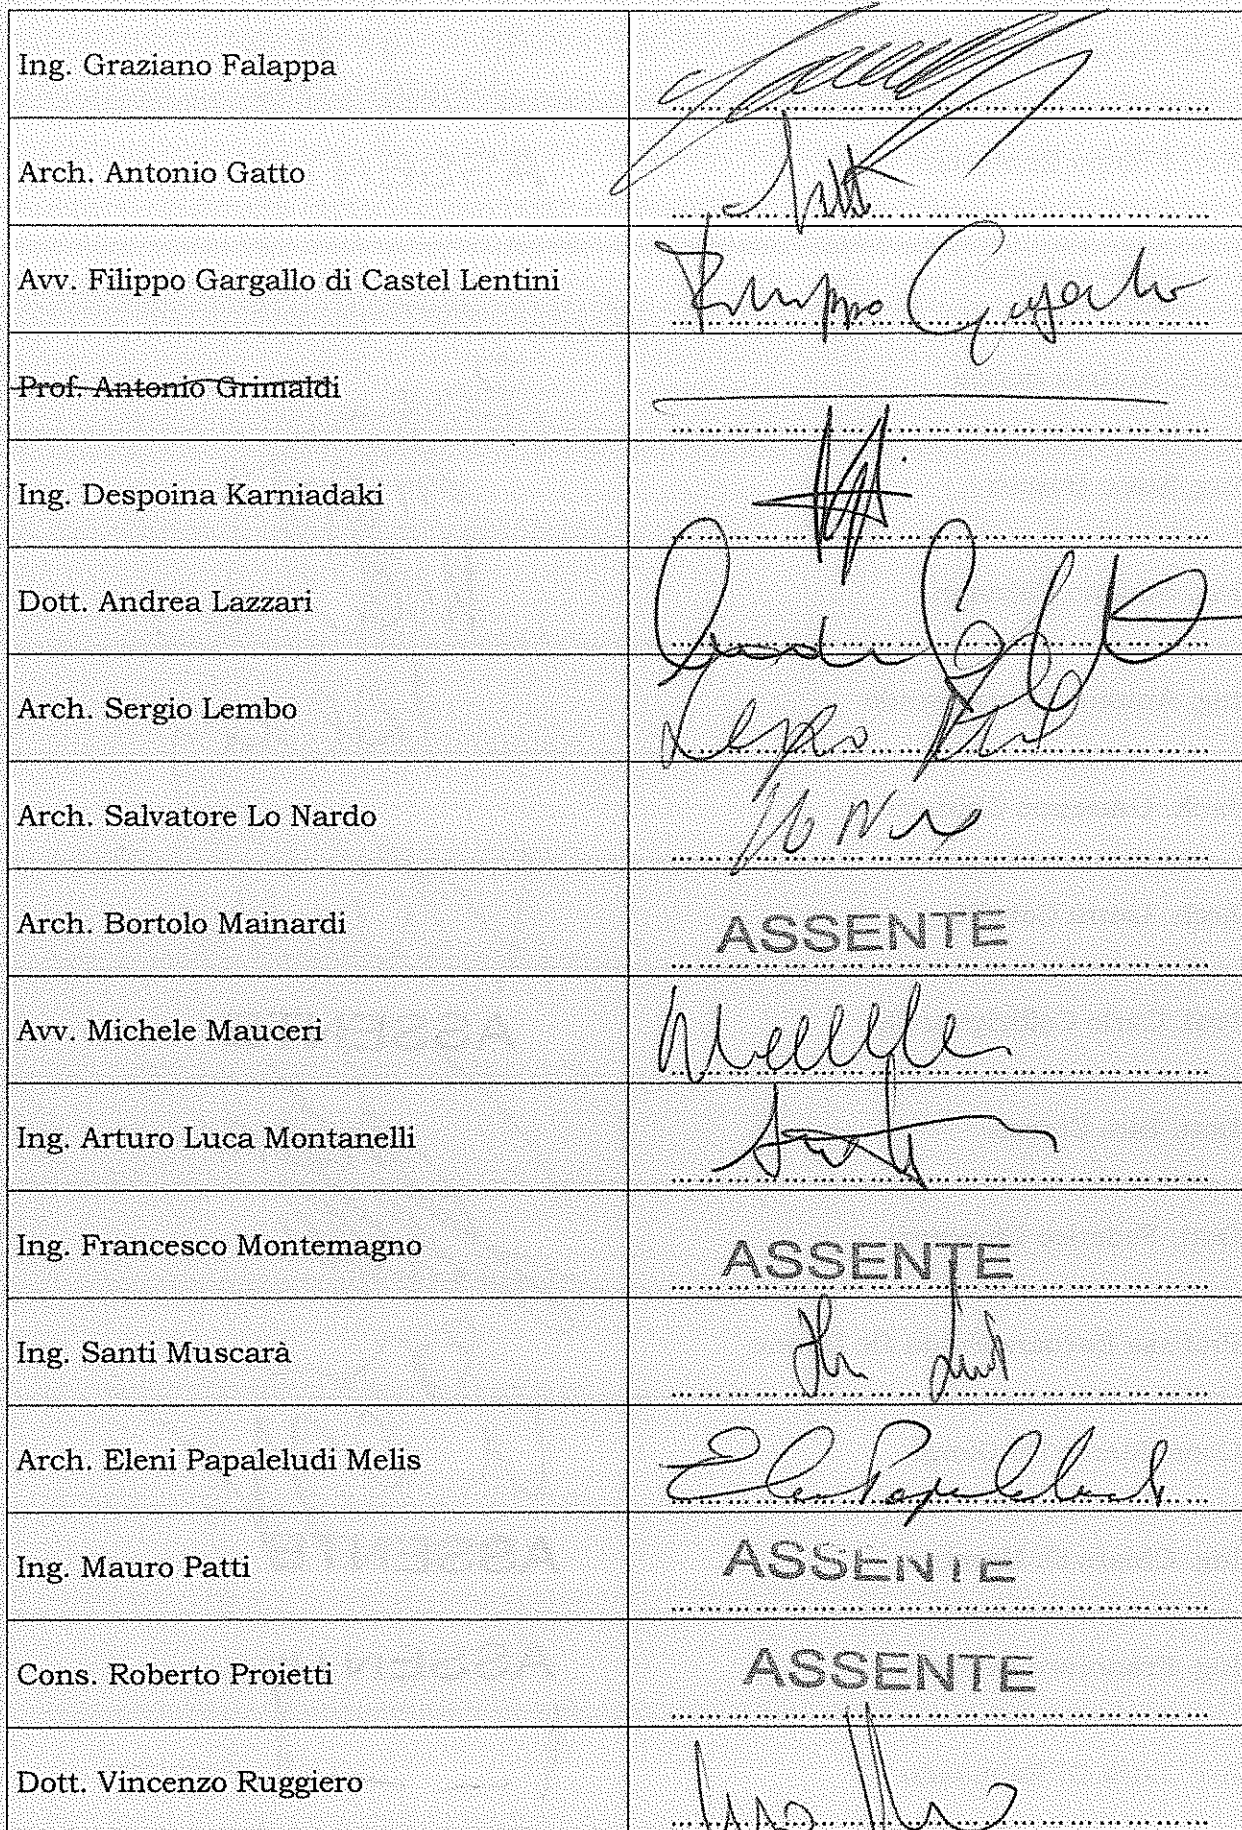 Ing. Graziano Falappa
Arch. Antonio Gatto
Avv. Filippo Gargallo di Castel Lentini
Filippo Gargallo
Prof. Antonio Grimaldi
Ing. Despoina Karniadaki
Dott. Andrea Lazzari
Arch. Sergio Lembo
Arch. Salvatore Lo Nardo
Arch. Bortolo Mainardi
ASSENTE
Avv. Michele Mauceri
Ing. Arturo Luca Montanelli
Ing. Francesco Montemagno
ASSENTE
Ing. Santi Muscarà
Arch. Eleni Papaleludi Melis
Ing. Mauro Patti
ASSENTE
Cons. Roberto Proietti
ASSENTE
Dott. Vincenzo Ruggiero